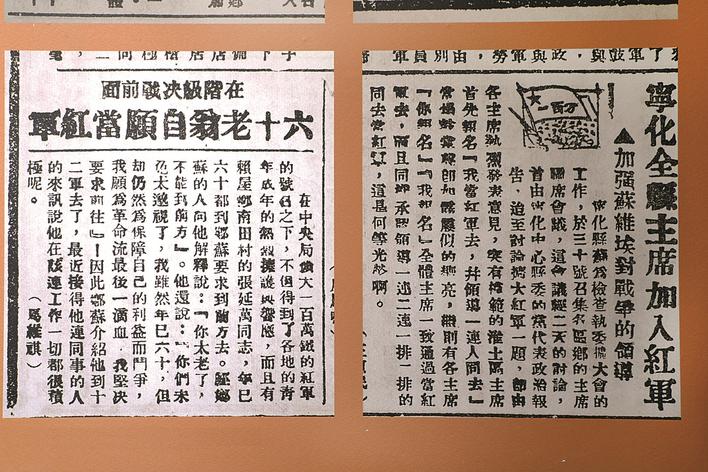 在階級决戰前面
六十老翁自願當紅軍
在中央局擴大一百萬鐵的紅軍
的號召之下，不但得到了各地的青
年成年的熱烈擁護與響應，而且有
賴屋鄉南田村的張延萬同志，年已
六十都到鄉蘇要求到前方去。經鄉
蘇的人向他解釋說：『你太老了，
不能到前方』。他還說：『你們未
免太邈視了，我雖然年已六十，但
却仍然爲保障自己的利益而鬥爭，
我願爲革命流最後一滴血，我堅决
要求前往』！因此鄉蘇介紹他到十
二軍去了，最近接得他連同事的人
的來訊說他在該連工作一切都很積
極呢。
（馬維祺）
寧化全縣主席加入紅軍
▲加强蘇維埃對戰爭的領導
寧化縣蘇爲檢查執委擴大會的
工作，於三十號召集各區鄉的主席
團席會議，這會議經二天的討論，
首由寧化中心縣委的黨代表政治報
告，迨至討論擴大紅軍一題，卽由
各主席熱烈發表意見，突有模範的淮土區主席
首先報名『我當紅軍去，幷領導一連人同去』
當場鼓掌聲卽如雷震似的嚮亮，無則有各主席
『你報名』『我報名』全體主席一致通過當紅
軍去，而且同時承認領導一連二連一排一排的
同去當紅軍，這是何等光榮啊。